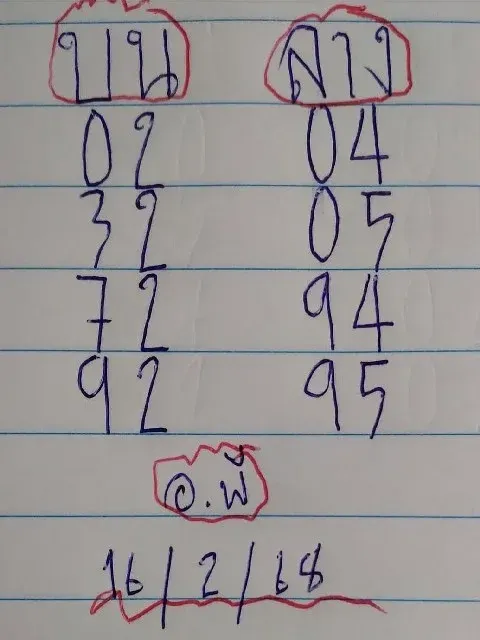 บน ล่าง
02 04
32 05
72 94
92 95
อ.พี
16/2/68